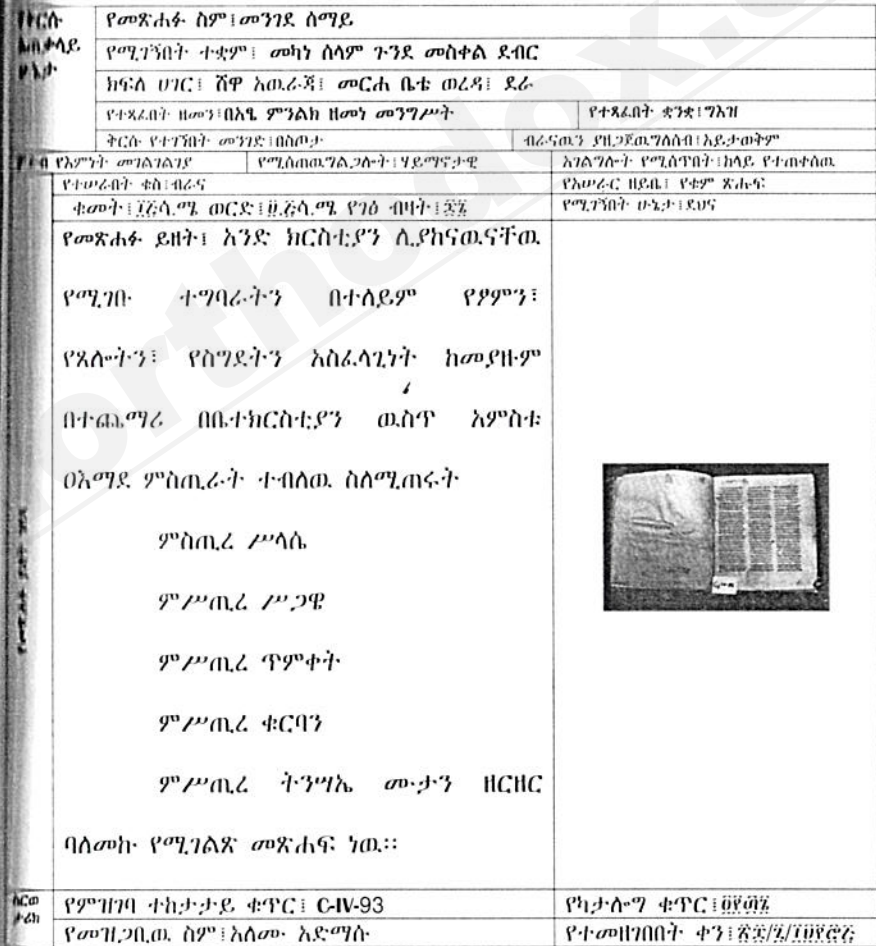 የቅርሱ
አጠቃላይ
ሁኔታ
የመጽሐፉ ስም፤መንገደ ሰማይ
የሚገኝበት ተቋም፤ መካነ ሰላም ጉንደ መስቀል ደብር
ክፍለ ሀገር፤ ሸዋ አዉራጃ፤ መርሐ ቤቴ ወረዳ፤ ደራ
የተጻፈበት ዘመን፤በአፄ ምንልክ ዘመነ መንግሥት የተጻፈበት ቋንቋ፤ግእዝ
ቅርሱ የተገኘበት መንገድ፤በስጦታ ብራናዉን ያዘጋጀዉግለሰብ፤አይታወቅም
የእምነት መገልገልገያ የሚሰጠዉግልጋሎት፤ሃይማኖታዊ አገልግሎት የሚሰጥበት፤ከላይ የተጠቀሰዉ
የተሠራበት ቁስ፤ብራና የአሠራር ዘይቤ፤ የቁም ጽሑፍ
ቁመት፤፲፭ሳ.ሜ ወርድ፤፱.፭ሳ.ሜ የገፅ ብዛት፤ የሚገኝበት ሁኔታ፤ደህና
የመጽሐፉ ይዘት፤ አንድ ክርስቲያን ሊያከናዉናቸዉ
የሚገቡ ተግባራትን በተለይም የፆምን፣
የጸሎትን፣ የስግደትን አስፈላጊነት ከመያዙም
በተጨማሪ በቤተክርስቲያን ዉስጥ አምስቱ
ዐእማደ ምስጢራት ተብለዉ ስለሚጠሩት
ምስጢረ ሥላሴ
ምሥጢረ ሥጋዌ
ምሥጢረ ጥምቀት
ምሥጢረ ቁርባን
ምሥጢረ ትንሣኤ ሙታን ዘርዘር
ባለመኩ የሚገልጽ መጽሐፍ ነዉ።
የምዝገባ ተከታታይ ቁጥር፤ C-IV-93 የካታሎግ ቁጥር፤
የመዝጋቢዉ ስም፤አለሙ አድማሱ የተመዘገበበት ቀን፤
orthodox.